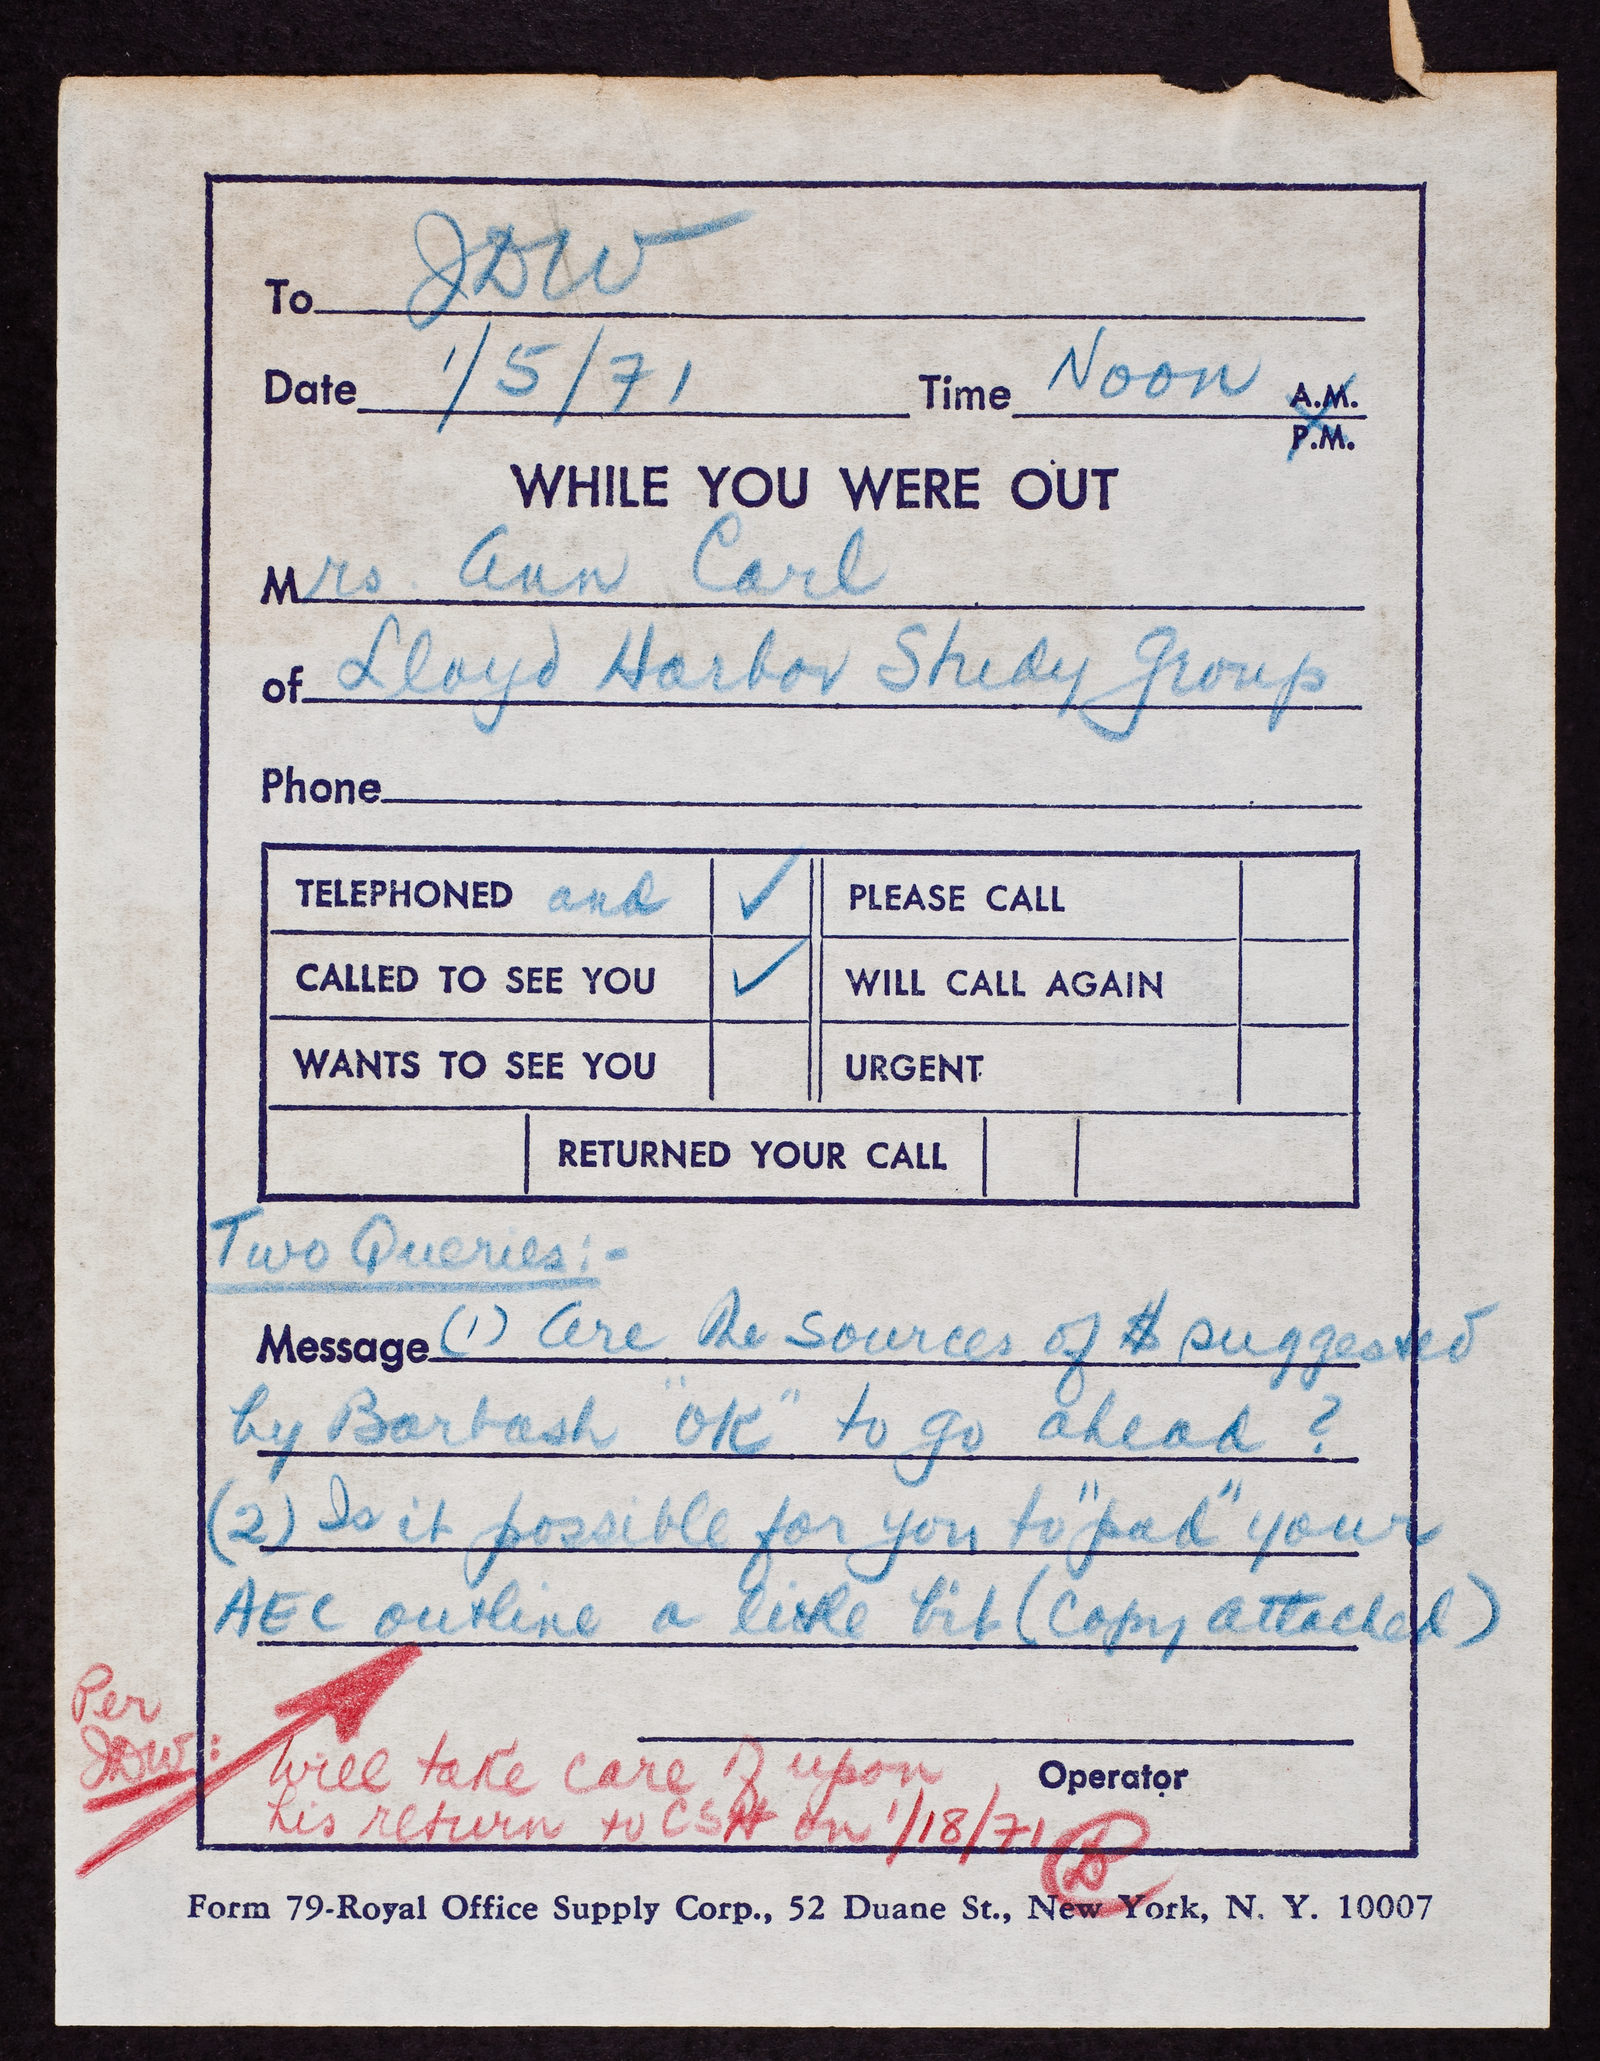 To JDW
Date 1/5/71 Time Noon A.M.
P.M.
WHILE YOU WERE OUT
Mrs. Ann Carl
of Lloyd Harbor Study Group
Phone
TELEPHONED and ✓ PLEASE CALL
CALLED TO SEE YOU ✓ WILL CALL AGAIN
WANTS TO SEE YOU URGENT
RETURNED YOUR CALL
Two Queries:-
Message (1) Are the sources of $ suggested
by Barbash "OK" to go ahead?
(2) Is it possible for you to "pad" your
AEC outline a little bit (Copy attached)
Per
JDW:
Will take care of upon
his return to CSH on 1/18/71
Operator
Form 79-Royal Office Supply Corp., 52 Duane St., New York, N. Y. 10007